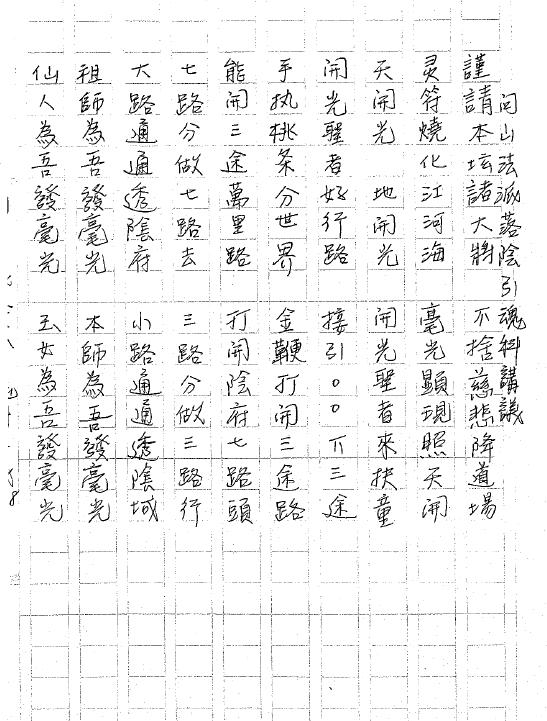 问山法派落陰引魂科講議
謹請本坛諸大將 不捨慈悲降道場
灵符燒化江河海 毫光顯現照天開
天開光 地開光 開光聖者來扶童
開光聖者好行路 接引○○下三途
手执桃条分世界 金鞭打開三途路
能開三途萬里路 打開陰府七路頭
七路分做七路去 三路分做三路行
大路通通透陰府 小路通通透陰城
祖師為吾發毫光 本師為吾發毫光
仙人為吾發毫光 玉女為吾發毫光